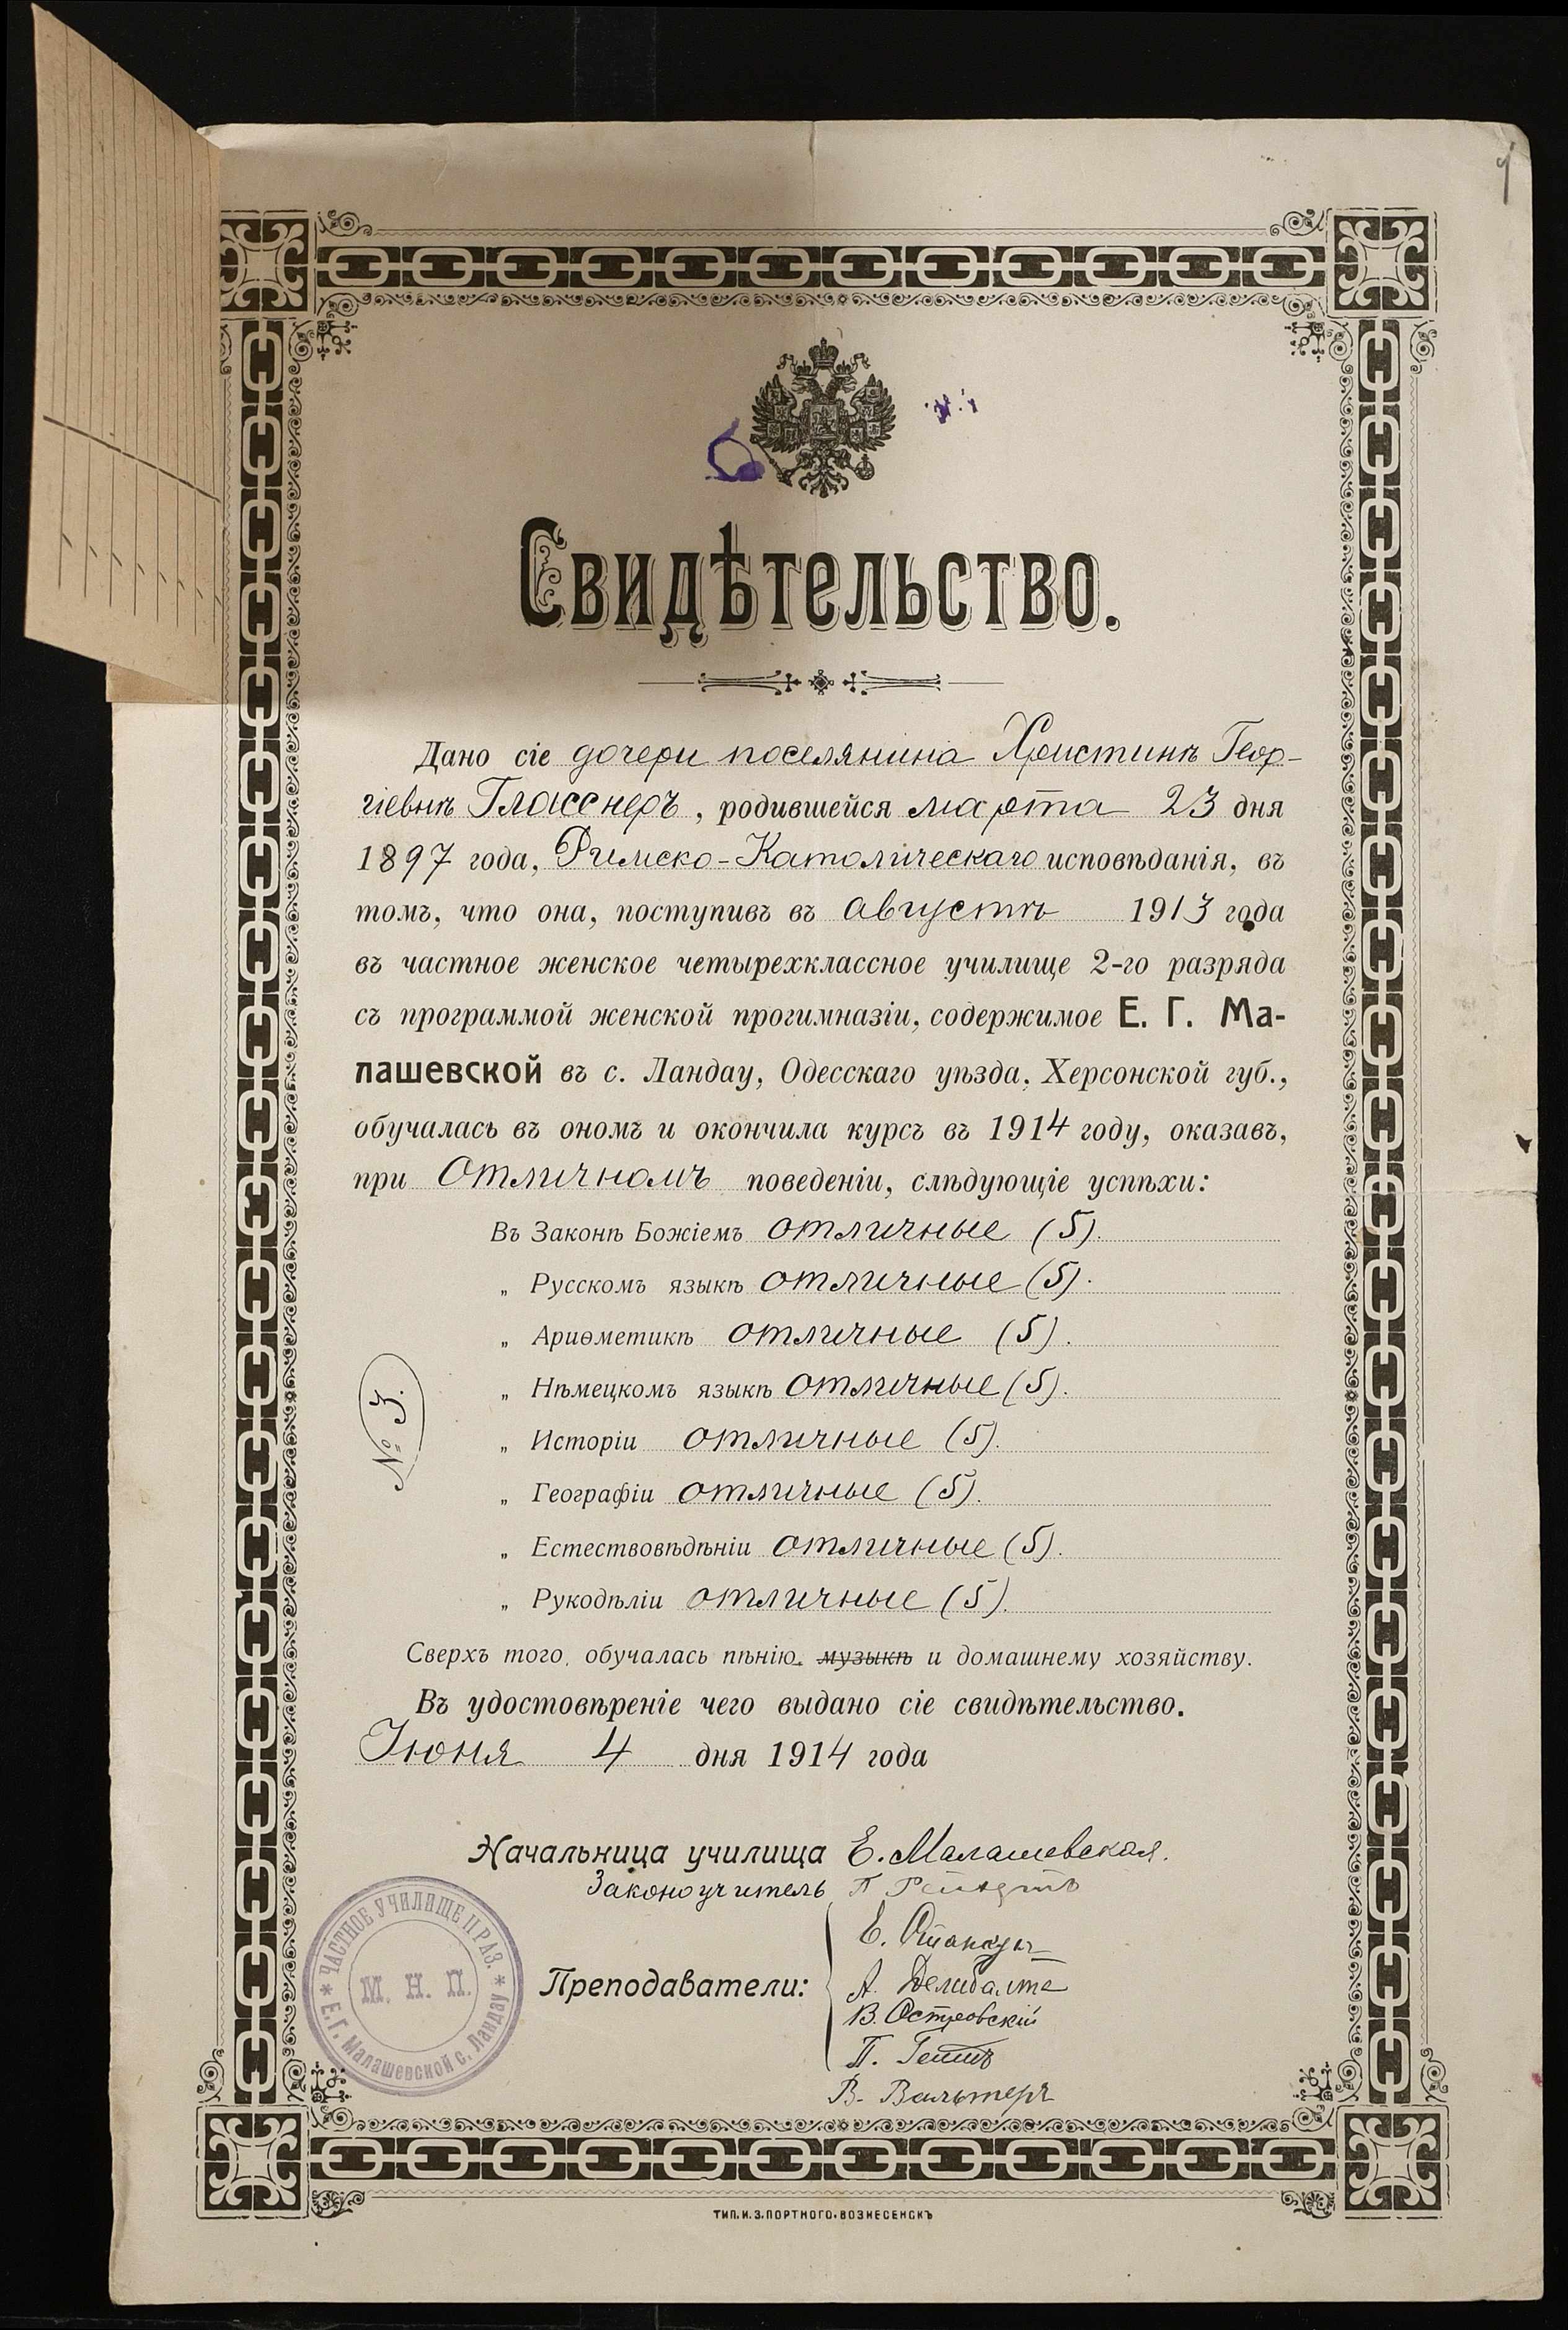 Свидѣтельство.
Дано сіе дочери поселянина Христинѣ Геор-
гіевнѣ Гласснеръ, родившейся марта 23 дня
1897 года, Римско-Католическаго исповѣданія, въ
томъ, что она, поступивъ въ августѣ 1913 года
въ частное женское четырехклассное училище 2-го разряда
съ программой женской прогимназіи, содержимое Е. Г. Ма-
лашевской въ с. Ландау, Одесскаго уѣзда, Херсонской губ.,
обучалась въ ономъ и окончила курсъ въ 1914 году, оказавъ,
при Отличномъ поведеніи, слѣдующіе успѣхи:
Въ Законѣ Божіемъ отличные (5).
„ Русскомъ языкѣ отличные (5).
„ Ариѳметикѣ отличные (5).
„ Нѣмецкомъ языкѣ отличные (5).
„ Исторіи отличные (5).
„ Географіи отличные (5).
„ Естествовѣдѣніи отличные (5).
„ Рукодѣліи отличные (5).
№
Сверхъ того, обучалась пѣнію, музыкѣ и домашнему хозяйству.
Въ удостовѣреніе чего выдано сіе свидѣтельство.
Іюня 4 дня 1914 года
Начальница училища Е. Малашевская.
Законоучитель П
Преподаватели:
Е.
А. Делибалта
В. Островскій
П.
В. Вальтеръ
ЧАСТНОЕ УЧИЛИЩЕ II РАЗ.
М. Н. П.
Е. Г. Малашевской с. Ландау
ТИП. И. З. ПОРТНОГО. ВОЗНЕСЕНСКЪ